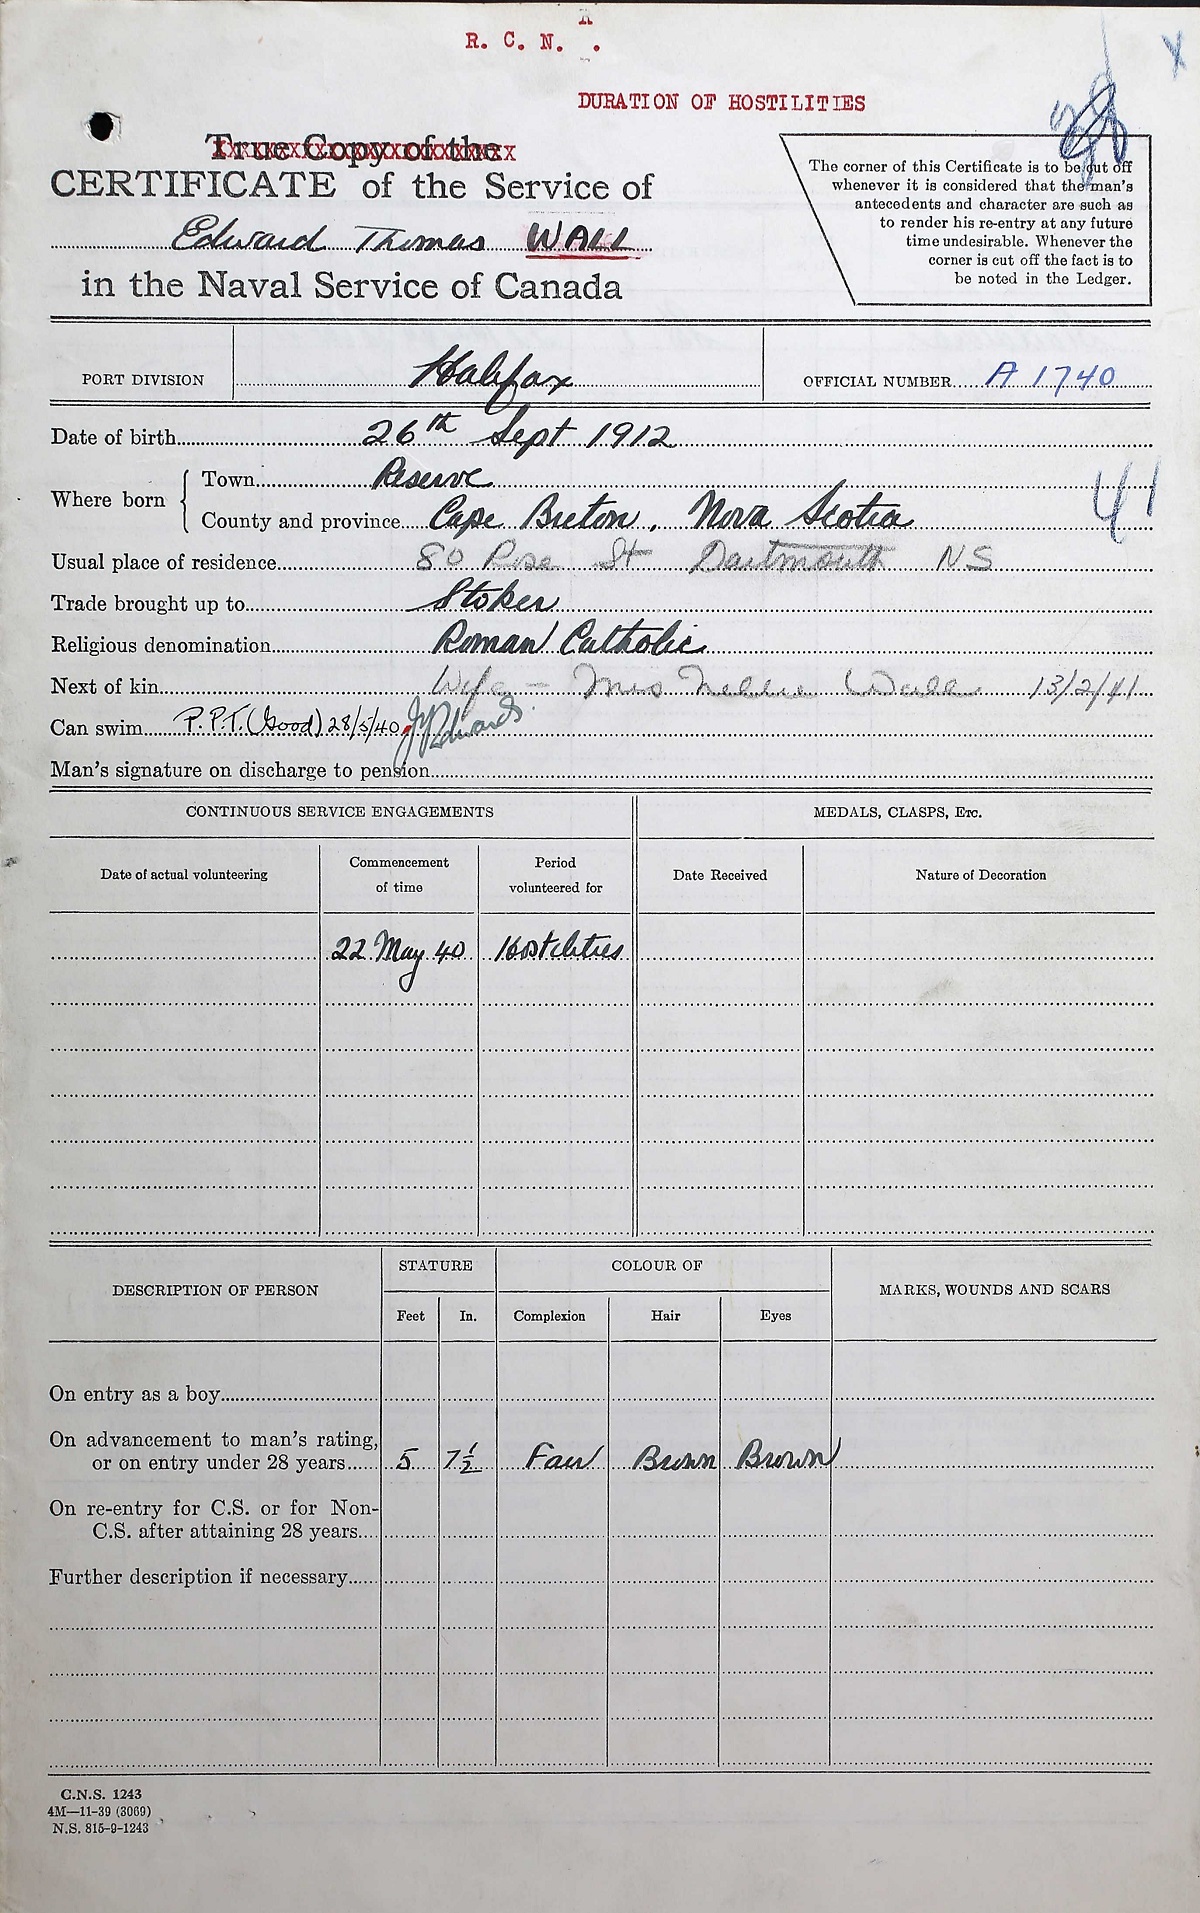 R. C. N. .
DURATION OF HOSTILITIES
True Copy of the
CERTIFICATE of the Service of
Edward Thomas WALL
in the Naval Service of Canada
The corner of this Certificate is to be cut off
whenever it is considered that the man's
antecedents and character are such as
to render his re-entry at any future
time undesirable. Whenever the
corner is cut off the fact is to
be noted in the Ledger.
PORT DIVISION Halifax OFFICIAL NUMBER A 1740
Date of birth 26th Sept 1912
Where born Town Reserve
County and province Cape Breton, Nova Scotia
41
Usual place of residence 80 Rose St Dartmouth NS
Trade brought up to Stoker
Religious denomination Roman Catholic
Next of kin Wife - Mrs Nellie Wall 13/2/41
Can swim P.P.T. (Good) 28/5/40 Edwards
Man's signature on discharge to pension
CONTINUOUS SERVICE ENGAGEMENTS MEDALS, CLASPS, Etc.
Date of actual volunteering Commencement of time Period volunteered for Date Received Nature of Decoration
22 May 40 Hostilities
DESCRIPTION OF PERSON STATURE COLOUR OF MARKS, WOUNDS AND SCARS
Feet In. Complexion Hair Eyes
On entry as a boy
On advancement to man's rating,
or on entry under 28 years 5 7½ Fair Brown Brown
On re-entry for C.S. or for Non-
C.S. after attaining 28 years
Further description if necessary
C.N.S. 1243
4M—11-39 (3069)
N.S. 815-9-1243